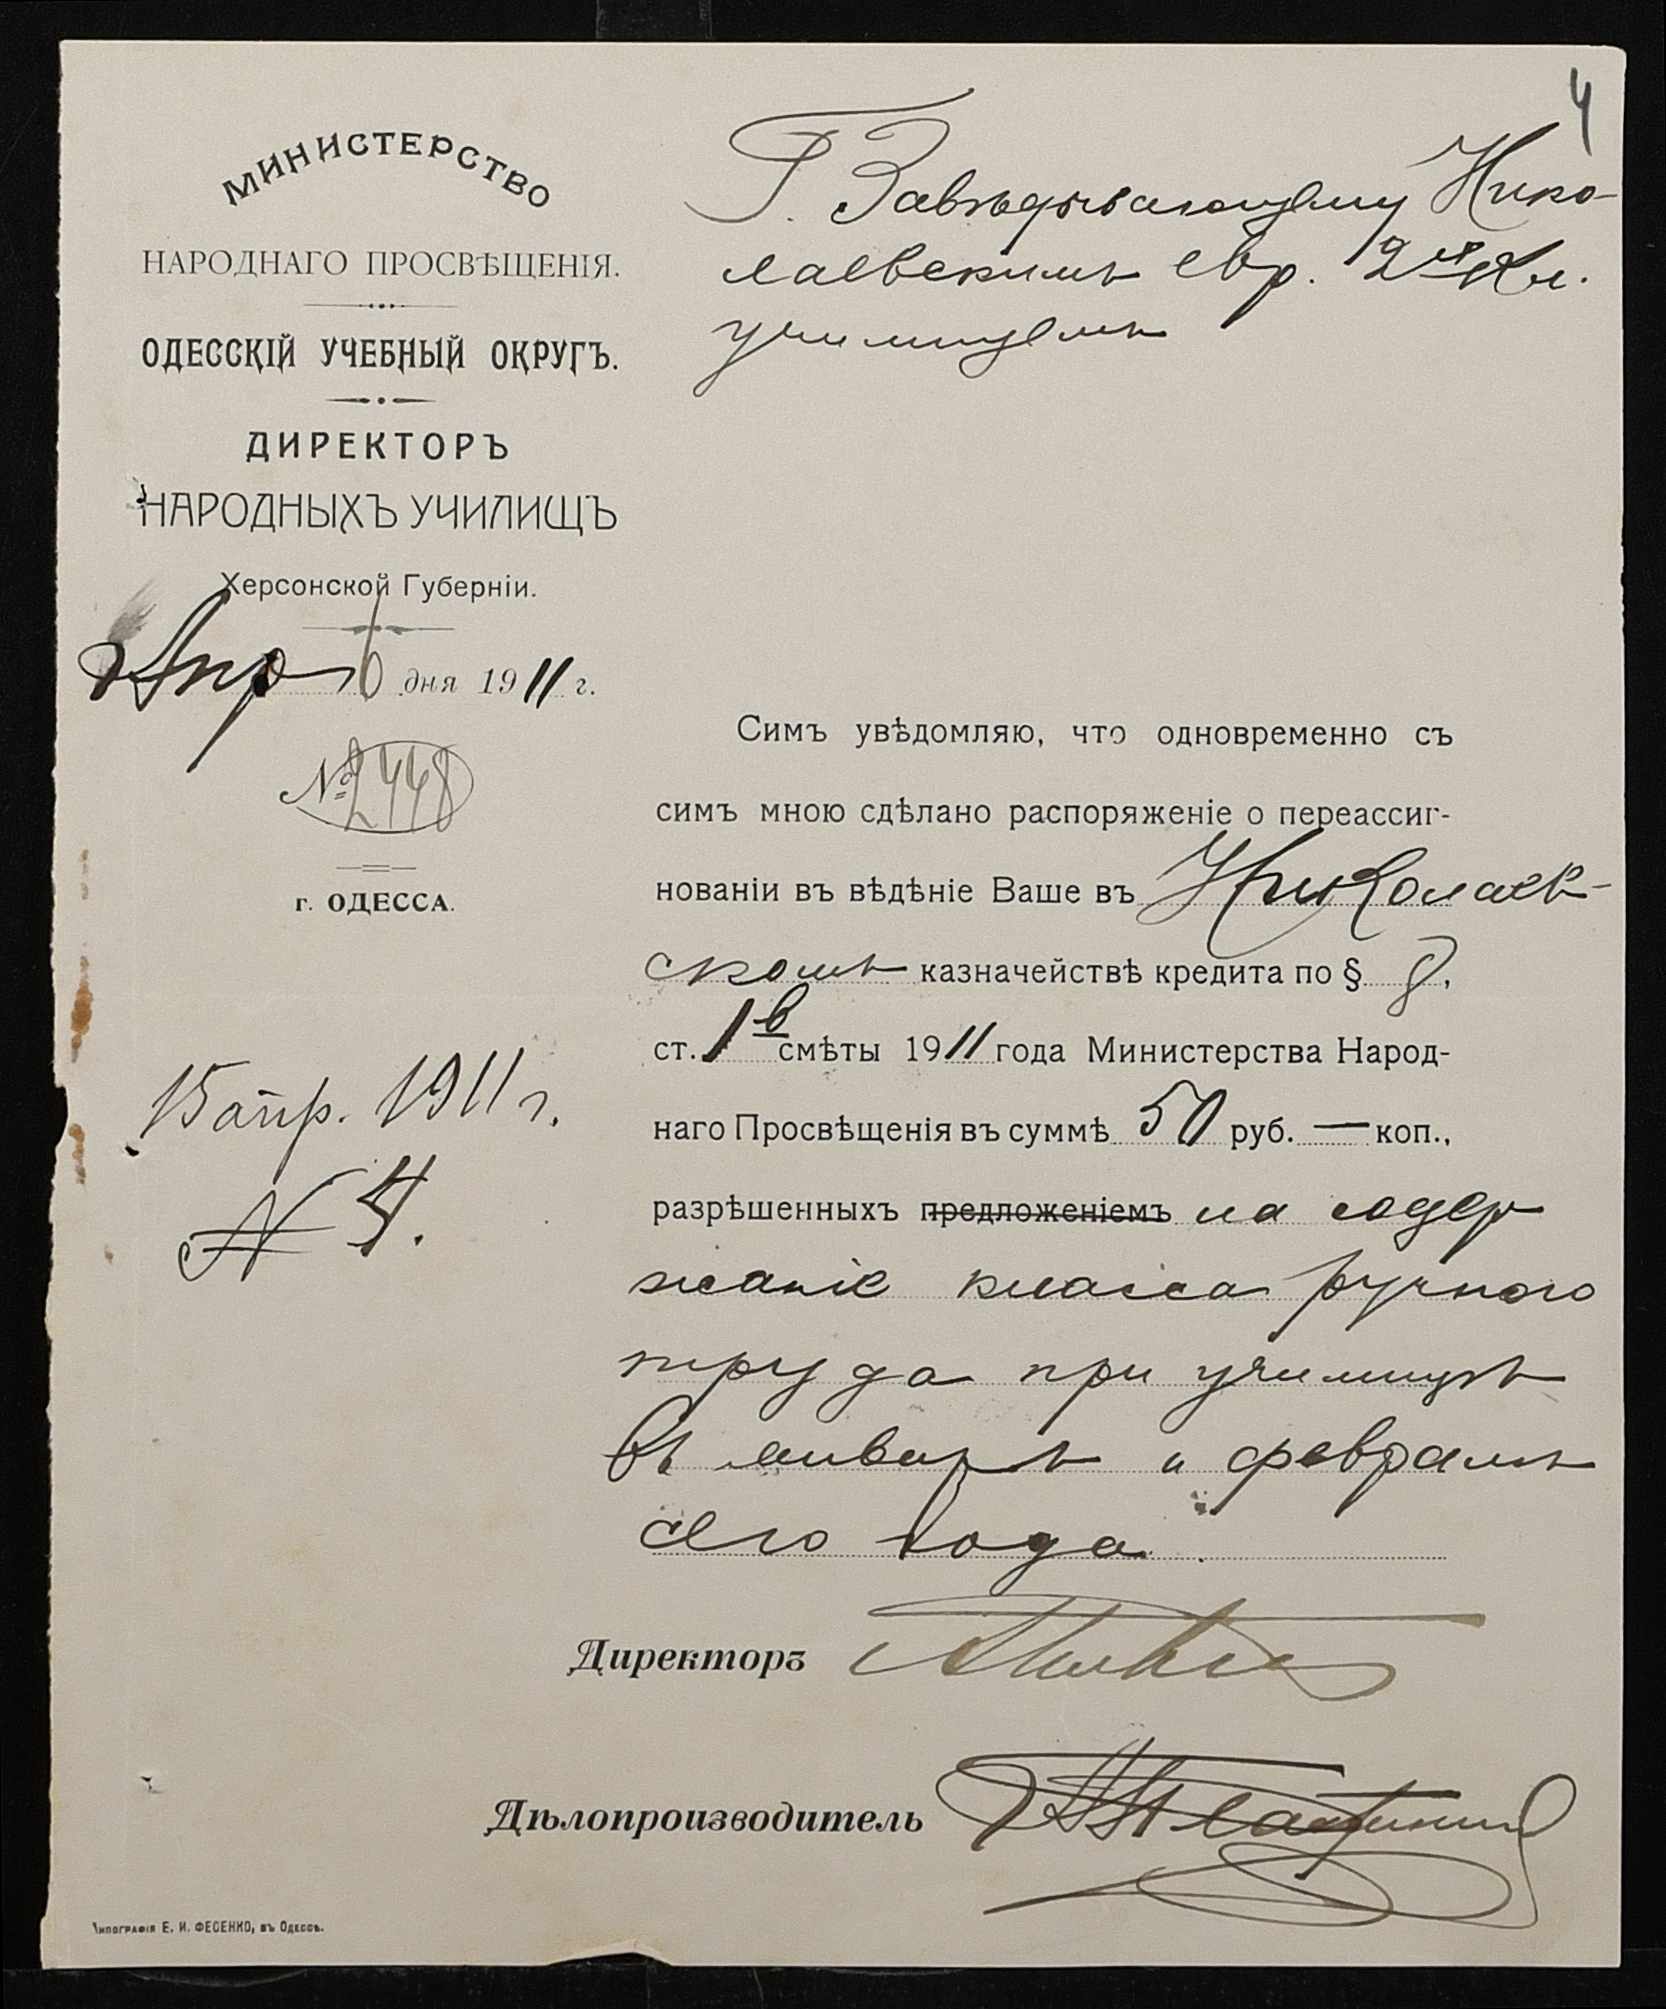 4
МИНИСТЕРСТВО
НАРОДНАГО ПРОСВѢЩЕНІЯ.
ОДЕССКІЙ УЧЕБНЫЙ ОКРУГЪ.
ДИРЕКТОРЪ
НАРОДНЫХЪ УЧИЛИЩЪ
Херсонской Губерніи.
Апр 6 дня 1911 г.
№ 2448
г. ОДЕССА.
15 апр. 1911 г.
№ 4.
Г. Завѣдывающему Нико-
лаевскимъ евр. 2хъ кл.
училищемъ
Симъ увѣдомляю, что одновременно съ
симъ мною сдѣлано распоряженіе о переассиг-
нованіи въ вѣдѣніе Ваше въ Николаев-
скомъ казначействѣ кредита по § 8,
ст. 1в смѣты 1911 года Министерства Народ-
наго Просвѣщенія въ суммѣ 50 руб. — коп.,
разрѣшенныхъ предложеніемъ на содер
жаніе класса ручного
труда при училищѣ
въ январѣ и февралѣ
сего года.
Директоръ
Дѣлопроизводитель
Типографія Е. И. ФЕСЕНКО, въ Одессѣ.